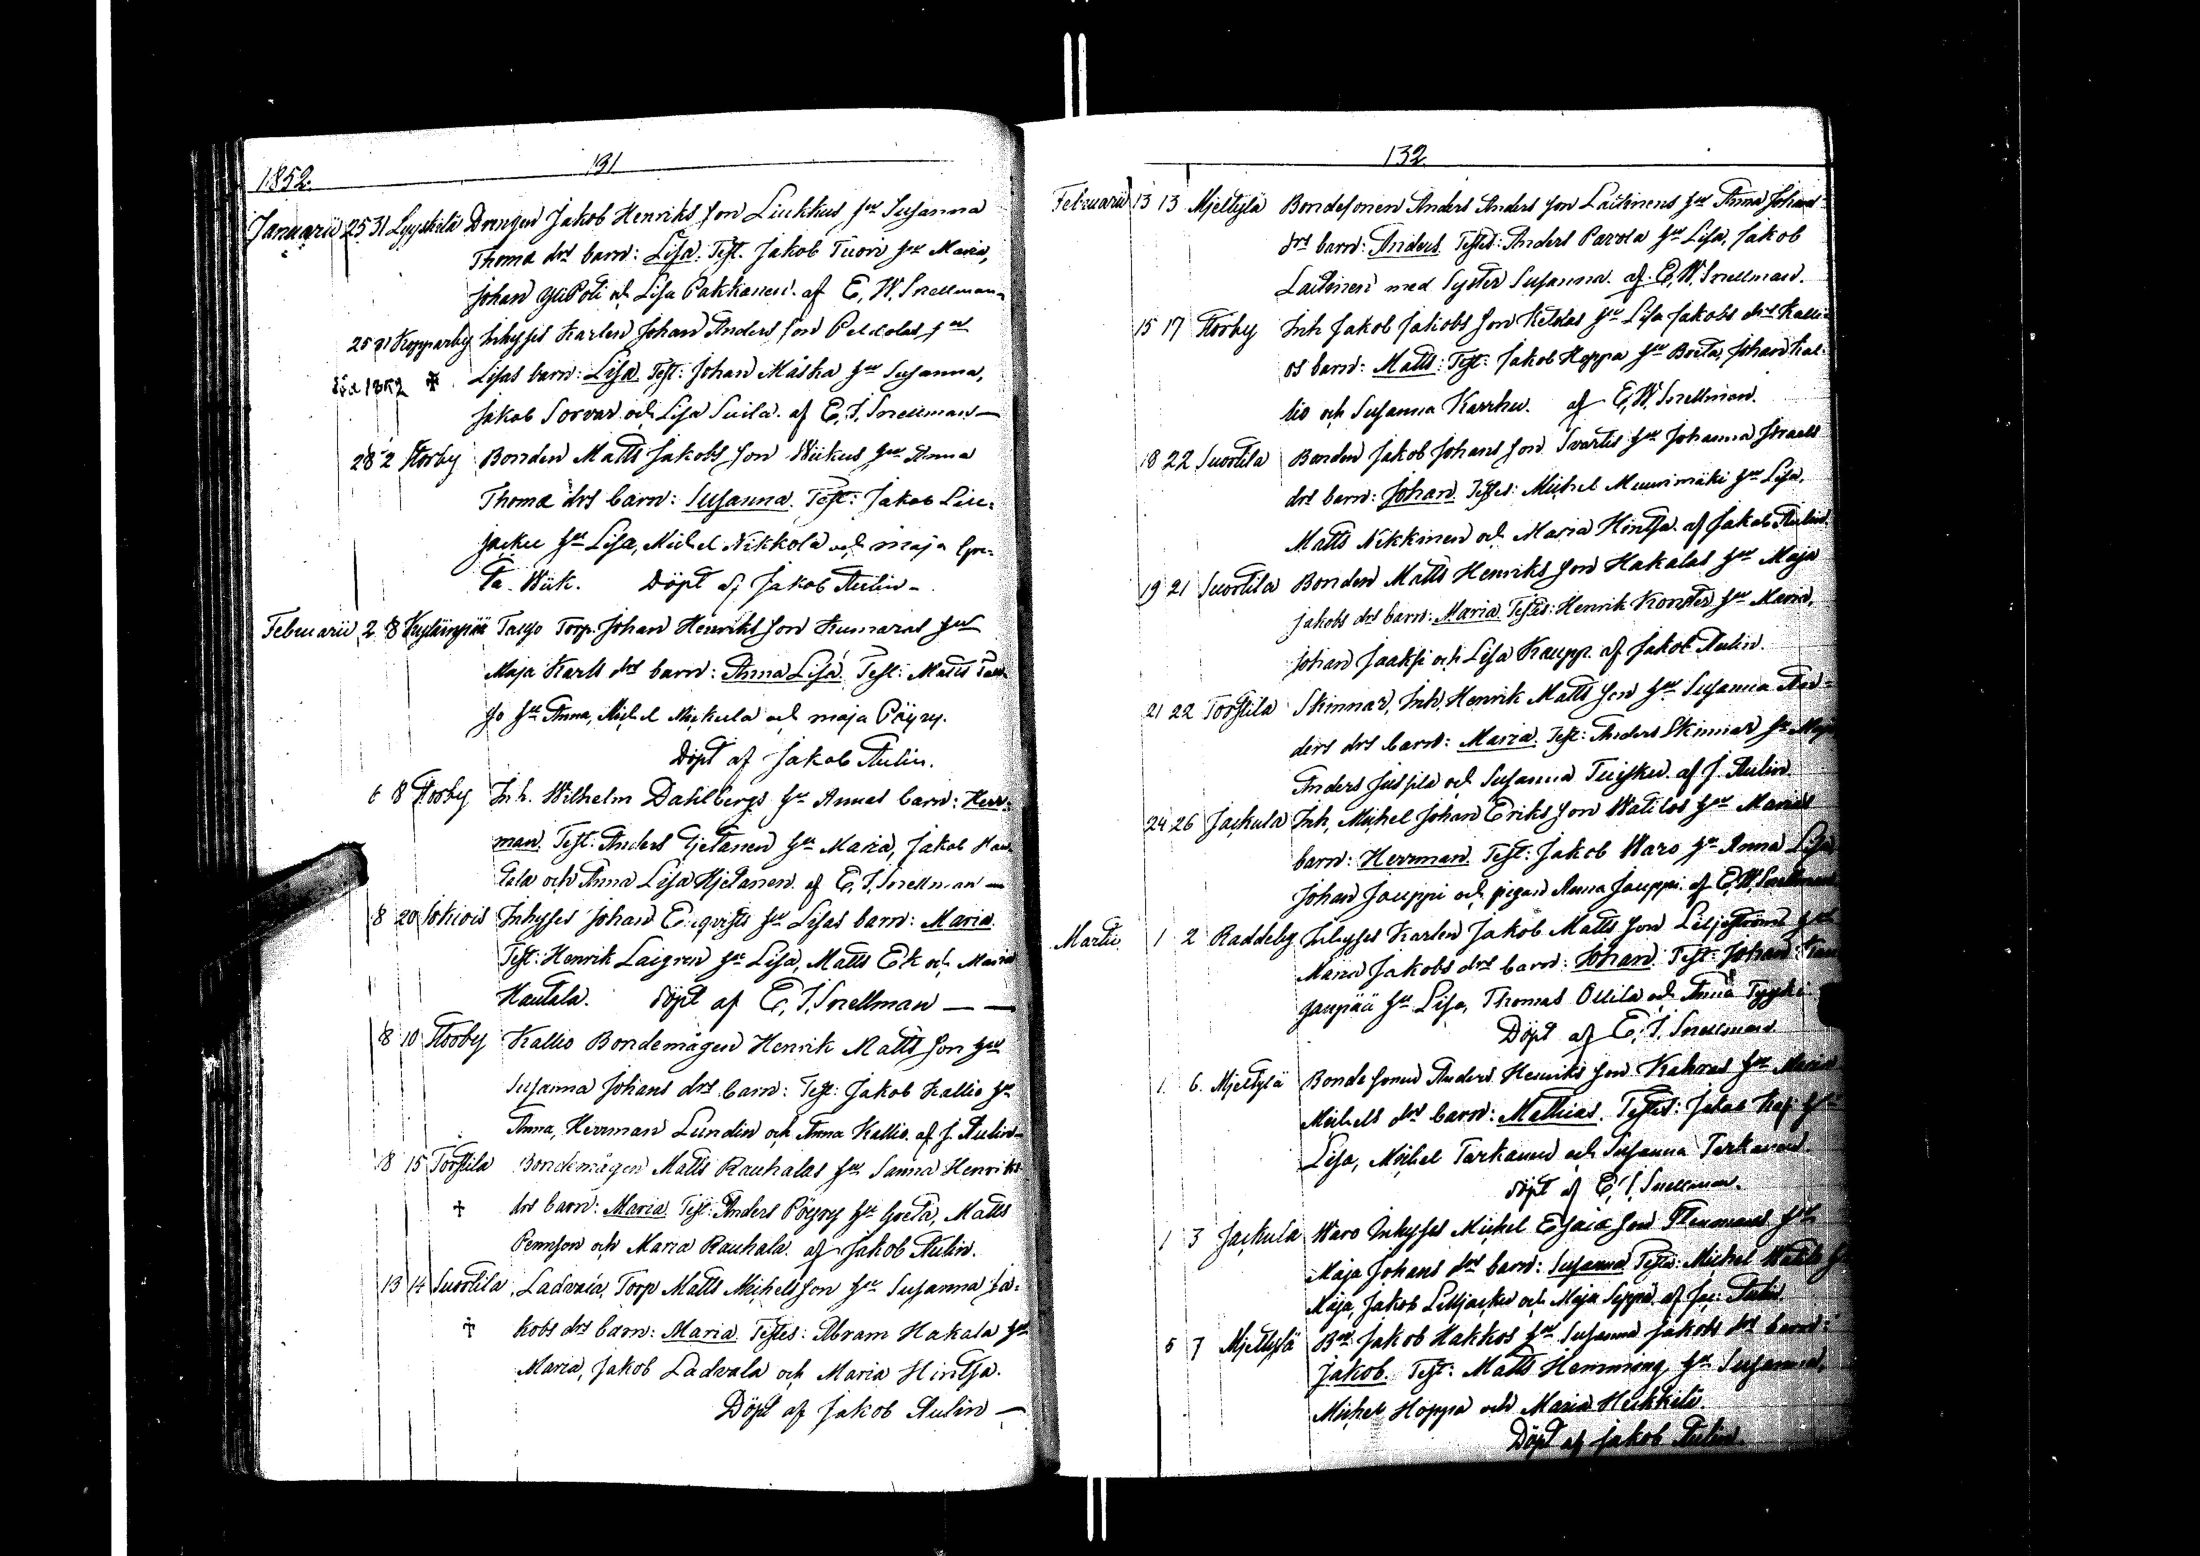 1852. 131
Januarii 25 31 Lyyskilä Drengen Jakob Henriks son Liukkus hu Susanna
Thomæ drs barn: Lisa. Test. Jakob Tuori hu Maria,
Johan YliPoti och Lisa Pakkanen. af E. W. Snellman
25 31 Kopparby Inhyses Karlen Johan Anders son Peldolas hu
död 1852 ✝ Lisas barn: Lisa. Test: Johan Maska hu Susanna,
Jakob Sorvar och Lisa Suila. af E. I. Snellman —
28 2 Storby Bonden Matts Jakobs son Wiikus hu Anna
Thomæ drs barn: Susanna. Test: Jakob
hu Lisa, Michel Nikkola och Maja Gre-
ta Wiik. Döpt af Jakob Aulin -
Februarii 2 8 Torp. Johan Henriks son Kumaras hu
Maja Karls drs barn: Anna Lisa. Test: Matts
hu Anna, Michel Mickula och Maja Pöyry.
Döpt af Jakob Aulin.
6 8 Storby Inh. Wilhelm Dahlbergs hu Annas barn: Herr-
man. Test: Anders Hietanen hu Maria, Jakob Hau-
tala och Anna Lisa Hietanen. af E. I. Snellman —
8 20 Jokiois Inhyses Johan Enqvists hu Lisas barn: Maria.
Test: Henrik Laigren hu Lisa, Matts Ek och Maria
Hautala. döpt af E. I. Snellman — —
8 10 Storby Kallio Bondemågen Henrik Matts son hu
Susanna Johans drs barn: Test: Jakob Kallio hu
Anna, Herrman Lundin och Anna Kallio. af J. Aulin —
8 15 Torstila Bondemågen Matts Rauhalas hu Sanna Henriks
✝ drs barn: Maria. Test: Anders Pöyry hu Greta, Matts
Pennson och Maria Rauhala. af Jakob Aulin.
13 14 Suortila Ladvala, Torp Matts Michelsson hu Susanna Ja-
✝ kobs drs barn: Maria. Testes: Abram Hakala hu
Maria, Jakob Ladvala och Maria Hintsa.
Döpt af Jakob Aulin —
132
Februarii 13 13 Mjeltylä Bondesonen Anders Anders son Laitinens hu Anna Johans
drs barn: Anders. Testes: Anders Parola hu Lisa, Jakob
Laitinen med Syster Susanna. af E. W. Snellman.
15 17 Storby Inh Jakob Jakobs son Ketolas hu Lisa Jakobs drs Kalli-
os barn: Matts. Test: Jakob Hoppa hu Brita, Johan Kal-
lio och Susanna Karrhu. af E. W. Snellman.
18 22 Suortila Bonden Jakob Johans son Svartis hu Johanna Israels
drs barn: Johan. Testes: Michel Muurimäki hu Lisa,
Matts Nikkinen och Maria Hintsa. af Jakob Aulin.
19 21 Suortila Bonden Matts Henriks son Hakalas hu Maja
Jakobs drs barn: Maria. Testes: Henrik Konster hu Maria,
Johan Jaaksi och Lisa Kauppi. af Jakob Aulin.
21 22 Torstila Skinnar, Inh. Henrik Matts son hu Susanna An-
ders drs barn: Maria. Test: Anders Skinnar hu Maja
Anders Juspla och Susanna Tuisku. af J. Aulin.
24 26 Jackula Inh, Michel Johan Eriks son Watilos hu Marias
barn: Herrman. Test: Jakob Waro hu Anna Lisa
Johan Jauppi och pigan Anna Jauppi. af E. W. Snellman
Martii 1 2 Raddeby Inhyses Karlen Jakob Matts son Liljeströms hu
Maria Jakobs drs barn: Johan. Test: Johan
hu Lisa, Thomas Ollila och Anna Tyyski.
Döpt af E. I. Snellman
1 6 Mjeltylä Bondesonen Anders Henriks son Kahras hu Maria
Michels drs barn: Mathias. Testes: Jakob hu
Lisa, Michel Tarkanen och Susanna Tarkanen.
döpt af E. I. Snellman.
1 3 Jackula Waro Inhyses Michel Esaiæ son hu
Maja Johans drs barn: Susanna. Testes: Michel Watilo hu
Maja, Jakob Lilljacku och Maja Seppä. af Jac: Aulin.
5 7 Mjeltylä Bn Jakob Hakkos hu Susanna Jakobs drs barn:
Jakob. Test: Matts Hemming hu Susanna,
Michel Hoppa och Maria Heikkilä.
Döpt af Jakob Aulin.